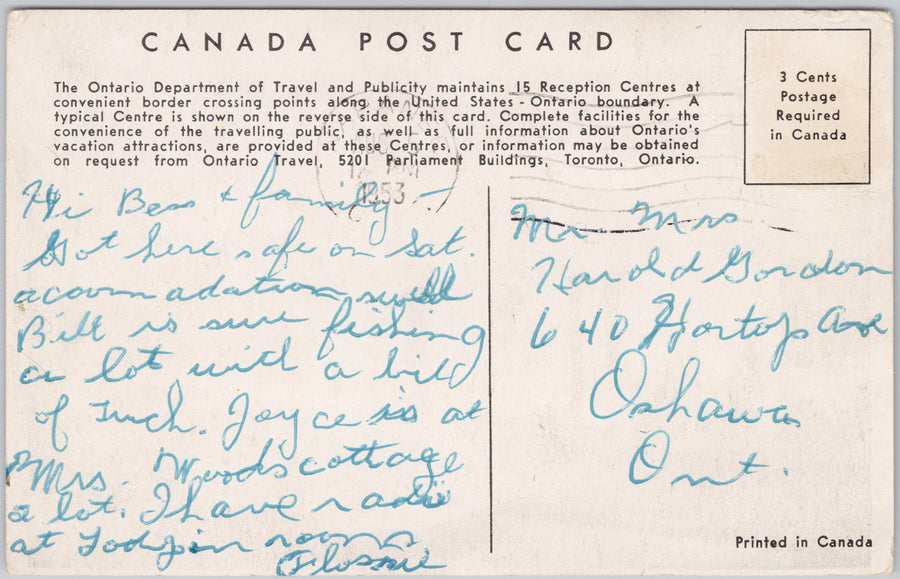 CANADA POST CARD
The Ontario Department of Travel and Publicity maintains 15 Reception Centres at
convenient border crossing points along the United States - Ontario boundary. A
typical Centre is shown on the reverse side of this card. Complete facilities for the
convenience of the travelling public, as well as full information about Ontario's
vacation attractions, are provided at these Centres, or information may be obtained
on request from Ontario Travel, 5201 Parliament Buildings, Toronto, Ontario.
3 Cents
Postage
Required
in Canada
PM
1953
Hi Bess & family —
Got here safe on Sat.
acoomadation swell
Bill is sure fishing
a lot with a bit
of luck. Joyce is at
Mrs. Woods cottage
a lot. I have radio
at Lodge in room
Flossie
Mr. Mrs.
Harold Gordon
640 Hortop Ave
Oshawa
Ont.
Printed in Canada